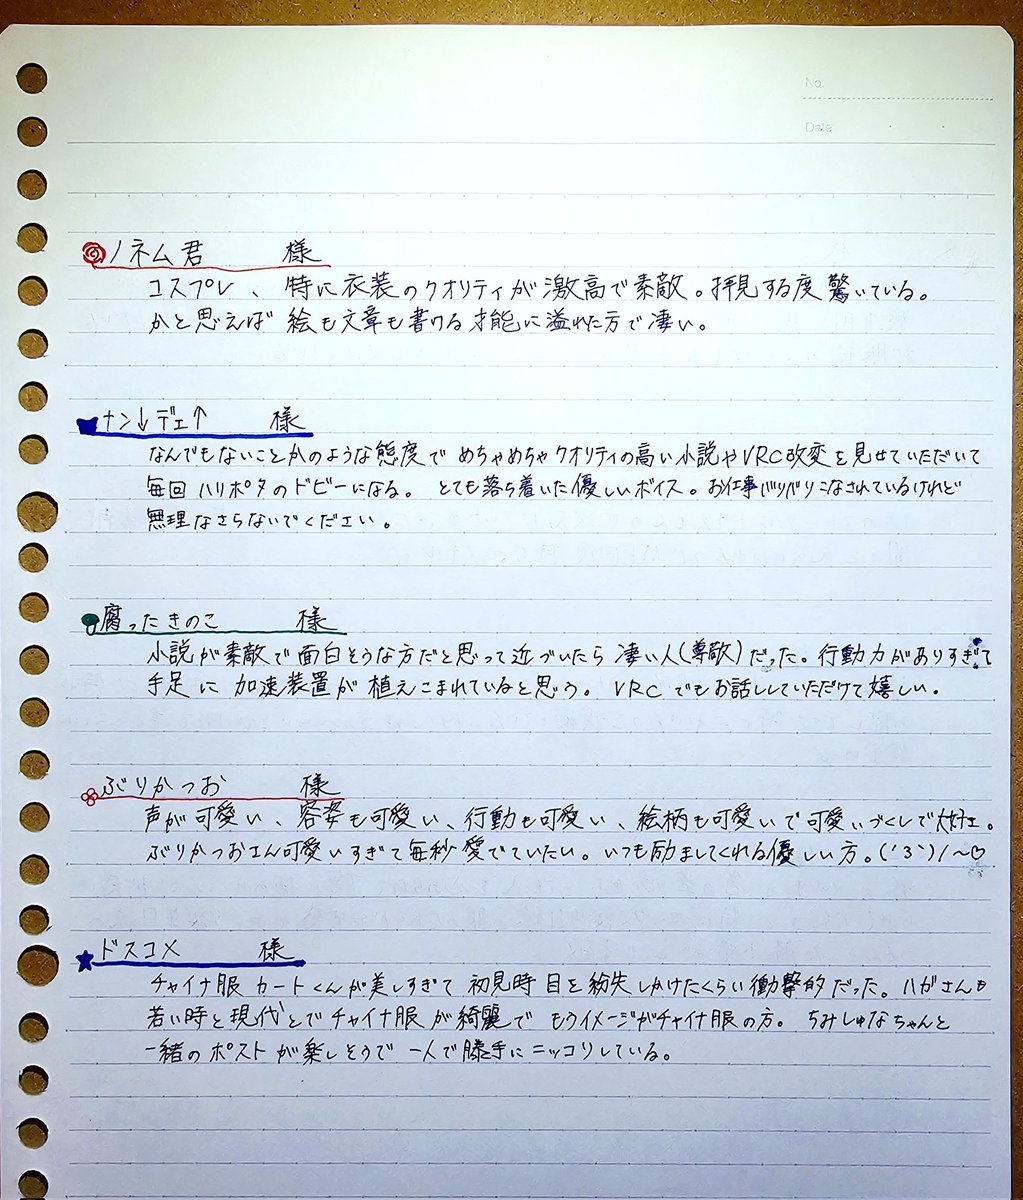 No.
Date
ノネム君 様
コスプレ、特に衣装のクオリティが激高で素敵。拝見する度驚いている。
かと思えば絵も文章も書ける才能に溢れた方で凄い。
ナン↓デェ↑ 様
なんでもないことかのような態度でめちゃめちゃクオリティの高い小説やVRC改変を見せていただいて
毎回ハリポタのドビーになる。とても落ち着いた優しいボイス。お仕事バリバリこなされているけれど
無理なさらないでください。
腐ったきのこ 様
小説が素敵で面白そうな方だと思って近づいたら凄い人(尊敬)だった。行動力がありすぎて
手足に加速装置が植えこまれていると思う。VRCでもお話ししていただけて嬉しい。
ぶりかつお 様
声が可愛い、容姿も可愛い、行動も可愛い、絵柄も可愛いで可愛いづくしで大好き。
ぶりかつおさん可愛いすぎて毎秒愛でていたい。いつも励ましてくれる優しい方。(´3`)ノ〜♡
ドスコメ 様
チャイナ服カートくんが美しすぎて初見時目を紛失しかけたくらい衝撃的だった。ハガさんも
若い時と現代とでチャイナ服が綺麗でもうイメージがチャイナ服の方。ちみしゅなちゃんと
一緒のポストが楽しそうで一人で勝手にニッコリしている。